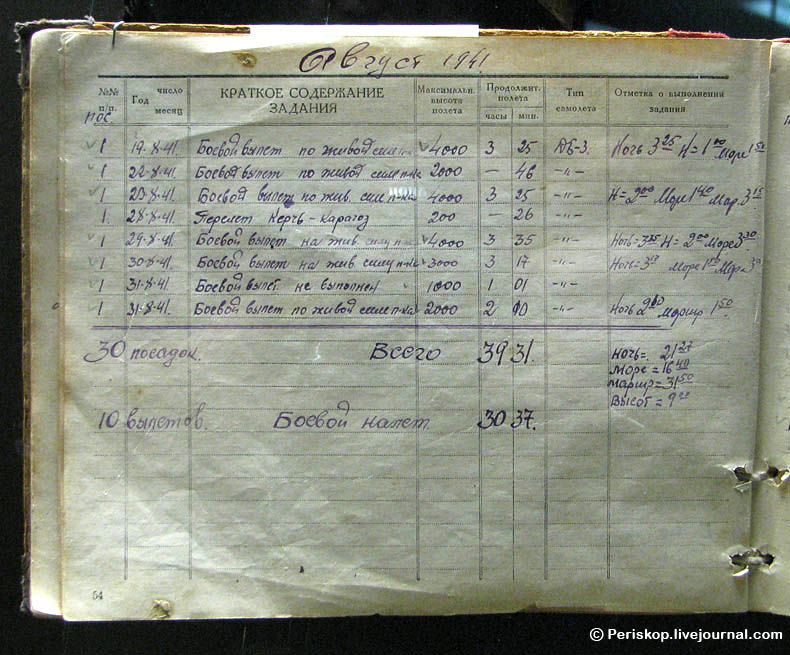 Август 1941
№№ п/п. Год число месяц КРАТКОЕ СОДЕРЖАНИЕ ЗАДАНИЯ Максимальн. высота полета Продолжит. полета часы мин. Тип самолета Отметка о выполнении задания
пос
1 19-8-41. Боевой вылет по живой силе п-ка 4000 3 25 ДБ-3. Ночь 3 25 Н= 1 00 Море 1 50
1 22-8-41. Боевой вылет по живой силе п-ка 2000 — 46 -„-
1 23-8-41. Боевой вылет по жив. силе п-ка 4000 3 25 -„- Н= 2 00 Море 1 40 Мар. 3 15
1. 28-8-41. Перелет Керчь-Карагоз 200 — 26 -„-
1 29-8-41. Боевой вылет на жив. силу п-ка 4000 3 35 -„- Ночь=3 35 Н= 2 00 Море 3 30
1 30-8-41. Боевой вылет на жив. силу п-ка 3000 3 17 -„- Ночь=3 Море 1 Мар=3
1 31-8-41. Боевой вылет не выполнен 1000 1 01 -„-
1 31-8-41. Боевой вылет по живой силе п-ка 2000 2 10 -„- Ночь 2 Маршр 1 50
30 посадок. Всего 39 31. Ночь= 21 27
Море = 16 40
Маршр= 31 50
Высот = 9 00
10 вылетов. Боевой налет 30 37.
54
© Periskop.livejournal.com